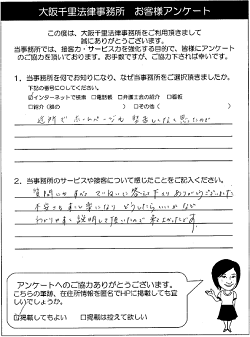 大阪千里法律事務所 お客様アンケート
この度は、大阪千里法律事務所をご利用頂きまして
誠にありがとうございます。
当事務所では、接客力・サービス力を強化する目的で、皆様にアンケート
のご協力を頂いております。お手数ですが、ご協力下されば幸いです。
1. 当事務所を何でお知りになり、なぜ当事務所をご選択頂きましたか。
下記の番号に○してください。
☑インターネットで検索 □電話帳 □弁護士会の紹介 □看板
□紹介(誰の ) □その他( )
近所で ホームページも 堅苦しくなく思ったので
2. 当事務所のサービスや接客について感じたことをご記入ください。
質問にも ていねいに答え下さり ありがとうございました
不安 どうしたらいいか など
わかりやすく説明して頂いたので 助かったです。
アンケートへのご協力ありがとうございます。
こちらの筆跡、在住所情報を匿名でHPに掲載しても宜
しいでしょうか。
☑掲載してもよい □掲載は控えて欲しい